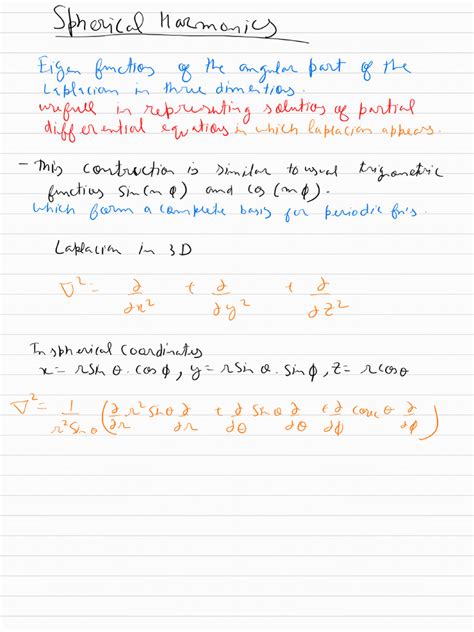 Spherical Harmonics
Eigen functions of the angular part of the
Laplacian in three dimentions.
usefull in representing solutions of partial
differential equations in which laplacian appears.
- This contruction is similar to usual trignometric
functions Sin(mϕ) and cos(mϕ).
which form a complete basis for periodic fn's.
Laplacian in 3D
∇² = ∂/∂x² + ∂/∂y² + ∂/∂z²
In spherical Coordinates
x = r Sin θ . cos ϕ , y = r Sin θ . Sin ϕ , z = r cos θ
∇² = 1/(r² Sin θ) ( ∂/∂r r² Sin θ ∂/∂r + ∂/∂θ Sin θ ∂/∂θ + ∂/∂ϕ cosec θ ∂/∂ϕ )